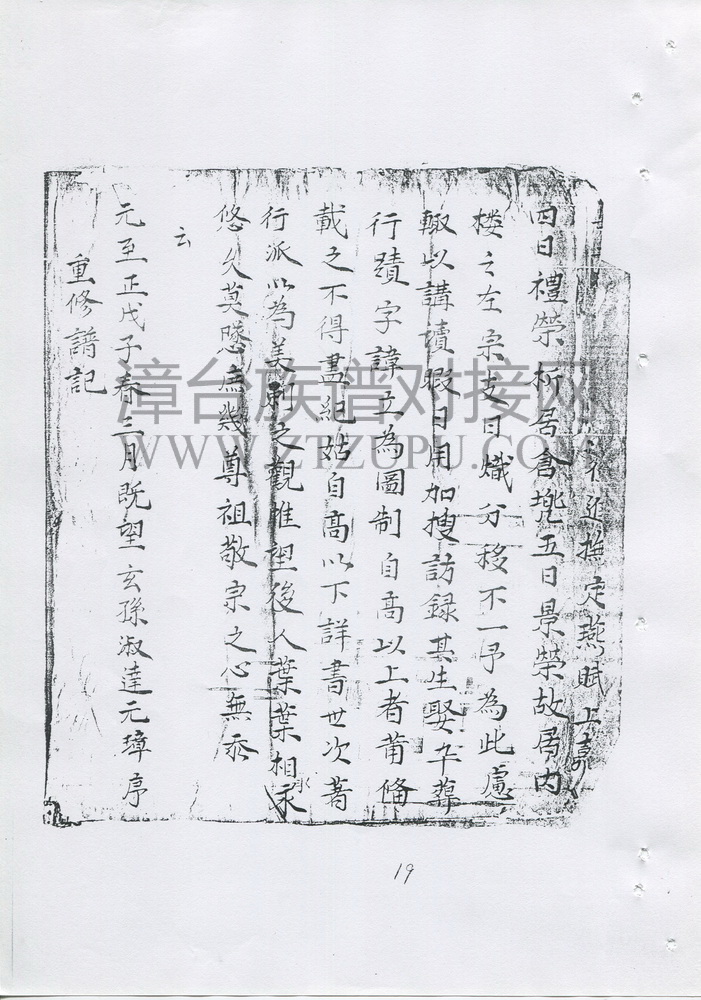 亲近撫定燕賦上壽
四曰禮榮析居倉墘五曰景榮故居内
楼之左宗支日熾分移不一予為此慮
輙以講讀暇日用加搜訪録其生娶卒葬
行蹟字諱立為圖制自高以上者莆俻
載之不得盡紀姑自高以下詳書世次著
行派以為美刺之觀惟望後人葉葉相永
悠久莫愍庶幾尊祖敬宗之心無忝
云
元至正戊子春三月既望玄孫淑達元璋序
重修譜記
漳台族谱对接网
WWW.ZTZUPU.COM
19